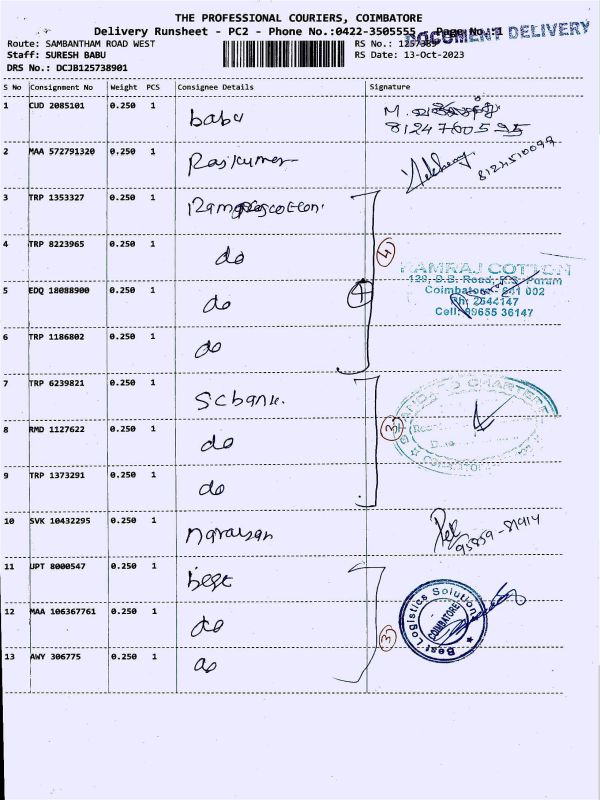 THE PROFESSIONAL COURIERS, COIMBATORE
Delivery Runsheet - PC2 - Phone No.:0422-3505555 Page No.:1
DOCUMENT DELIVERY
Route: SAMBANTHAM ROAD WEST RS No.: 1257389
Staff: SURESH BABU RS Date: 13-Oct-2023
DRS No.: DCJB125738901
S No Consignment No Weight PCS Consignee Details Signature
1 CUD 2085101 0.250 1 babu M.
8124760595
2 MAA 572791320 0.250 1 Rajkumar
3 TRP 1353327 0.250 1 Ramrajcotton
4 TRP 8223965 0.250 1 do 4
RAMRAJ COTTON
129, D.B. Road, R.S. Puram
5 EDQ 18088900 0.250 1 do 4 Coimbatore - 641 002
Ph: 2544147
Cell: 99655 36147
6 TRP 1186802 0.250 1 do
7 TRP 6239821 0.250 1 scbank.
CHARTERED
8 RMD 1127622 0.250 1 do 3
9 TRP 1373291 0.250 1 do
10 SVK 10432295 0.250 1 narayan
95859-81914
11 UPT 8000547 0.250 1 best
12 MAA 106367761 0.250 1 do 3
Best Logistics Solution
COIMBATORE
13 AWY 306775 0.250 1 do